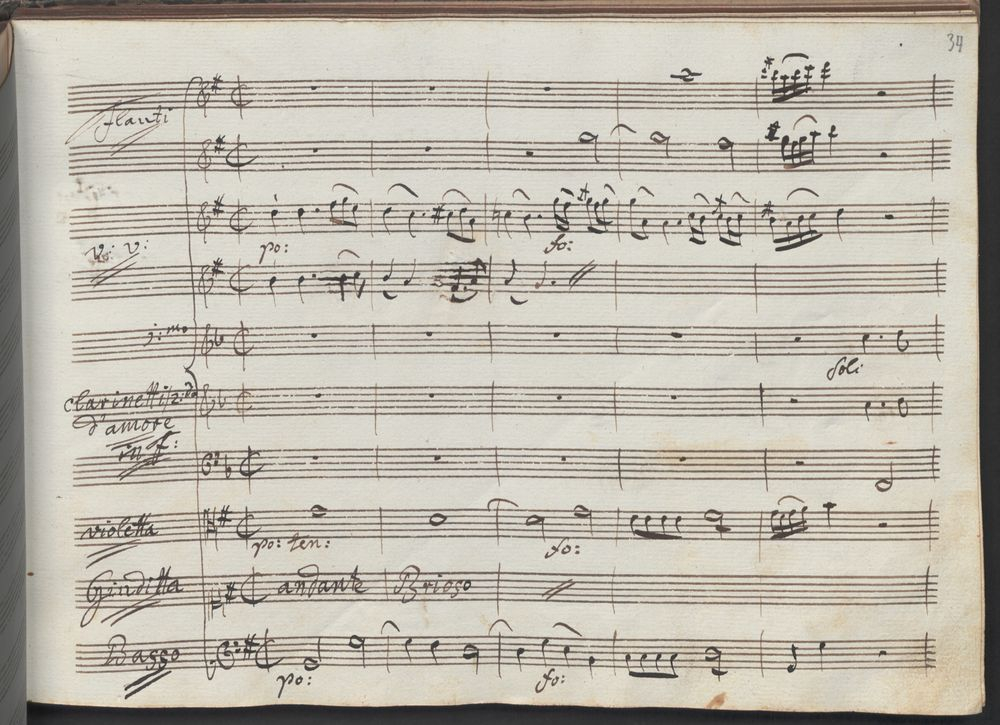 34
flauti
v: v:
po:
fo:
1:mo
Soli
clarinetti 2:do
d'amore
in f:
violetta
po: ten:
fo:
Giuditta
andante Brioso
Basso
po:
fo: